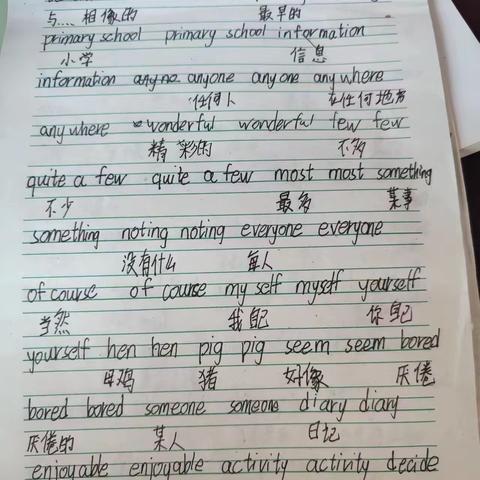 与.... 相像的 最早的
primary school primary school information
小学 信息
information anyone anyone anywhere
任何人 在任何地方
anywhere wonderful wonderful few few
精彩的 不多
quite a few quite a few most most something
不少 最多 某事
something noting noting everyone everyone
没有什么 每人
of course of course myself myself yourself
当然 我自己 你自己
yourself hen hen pig pig seem seem bored
母鸡 猪 好像 厌倦
bored bored someone someone diary diary
厌倦的 某人 日记
enjoyable enjoyable activity activity decide